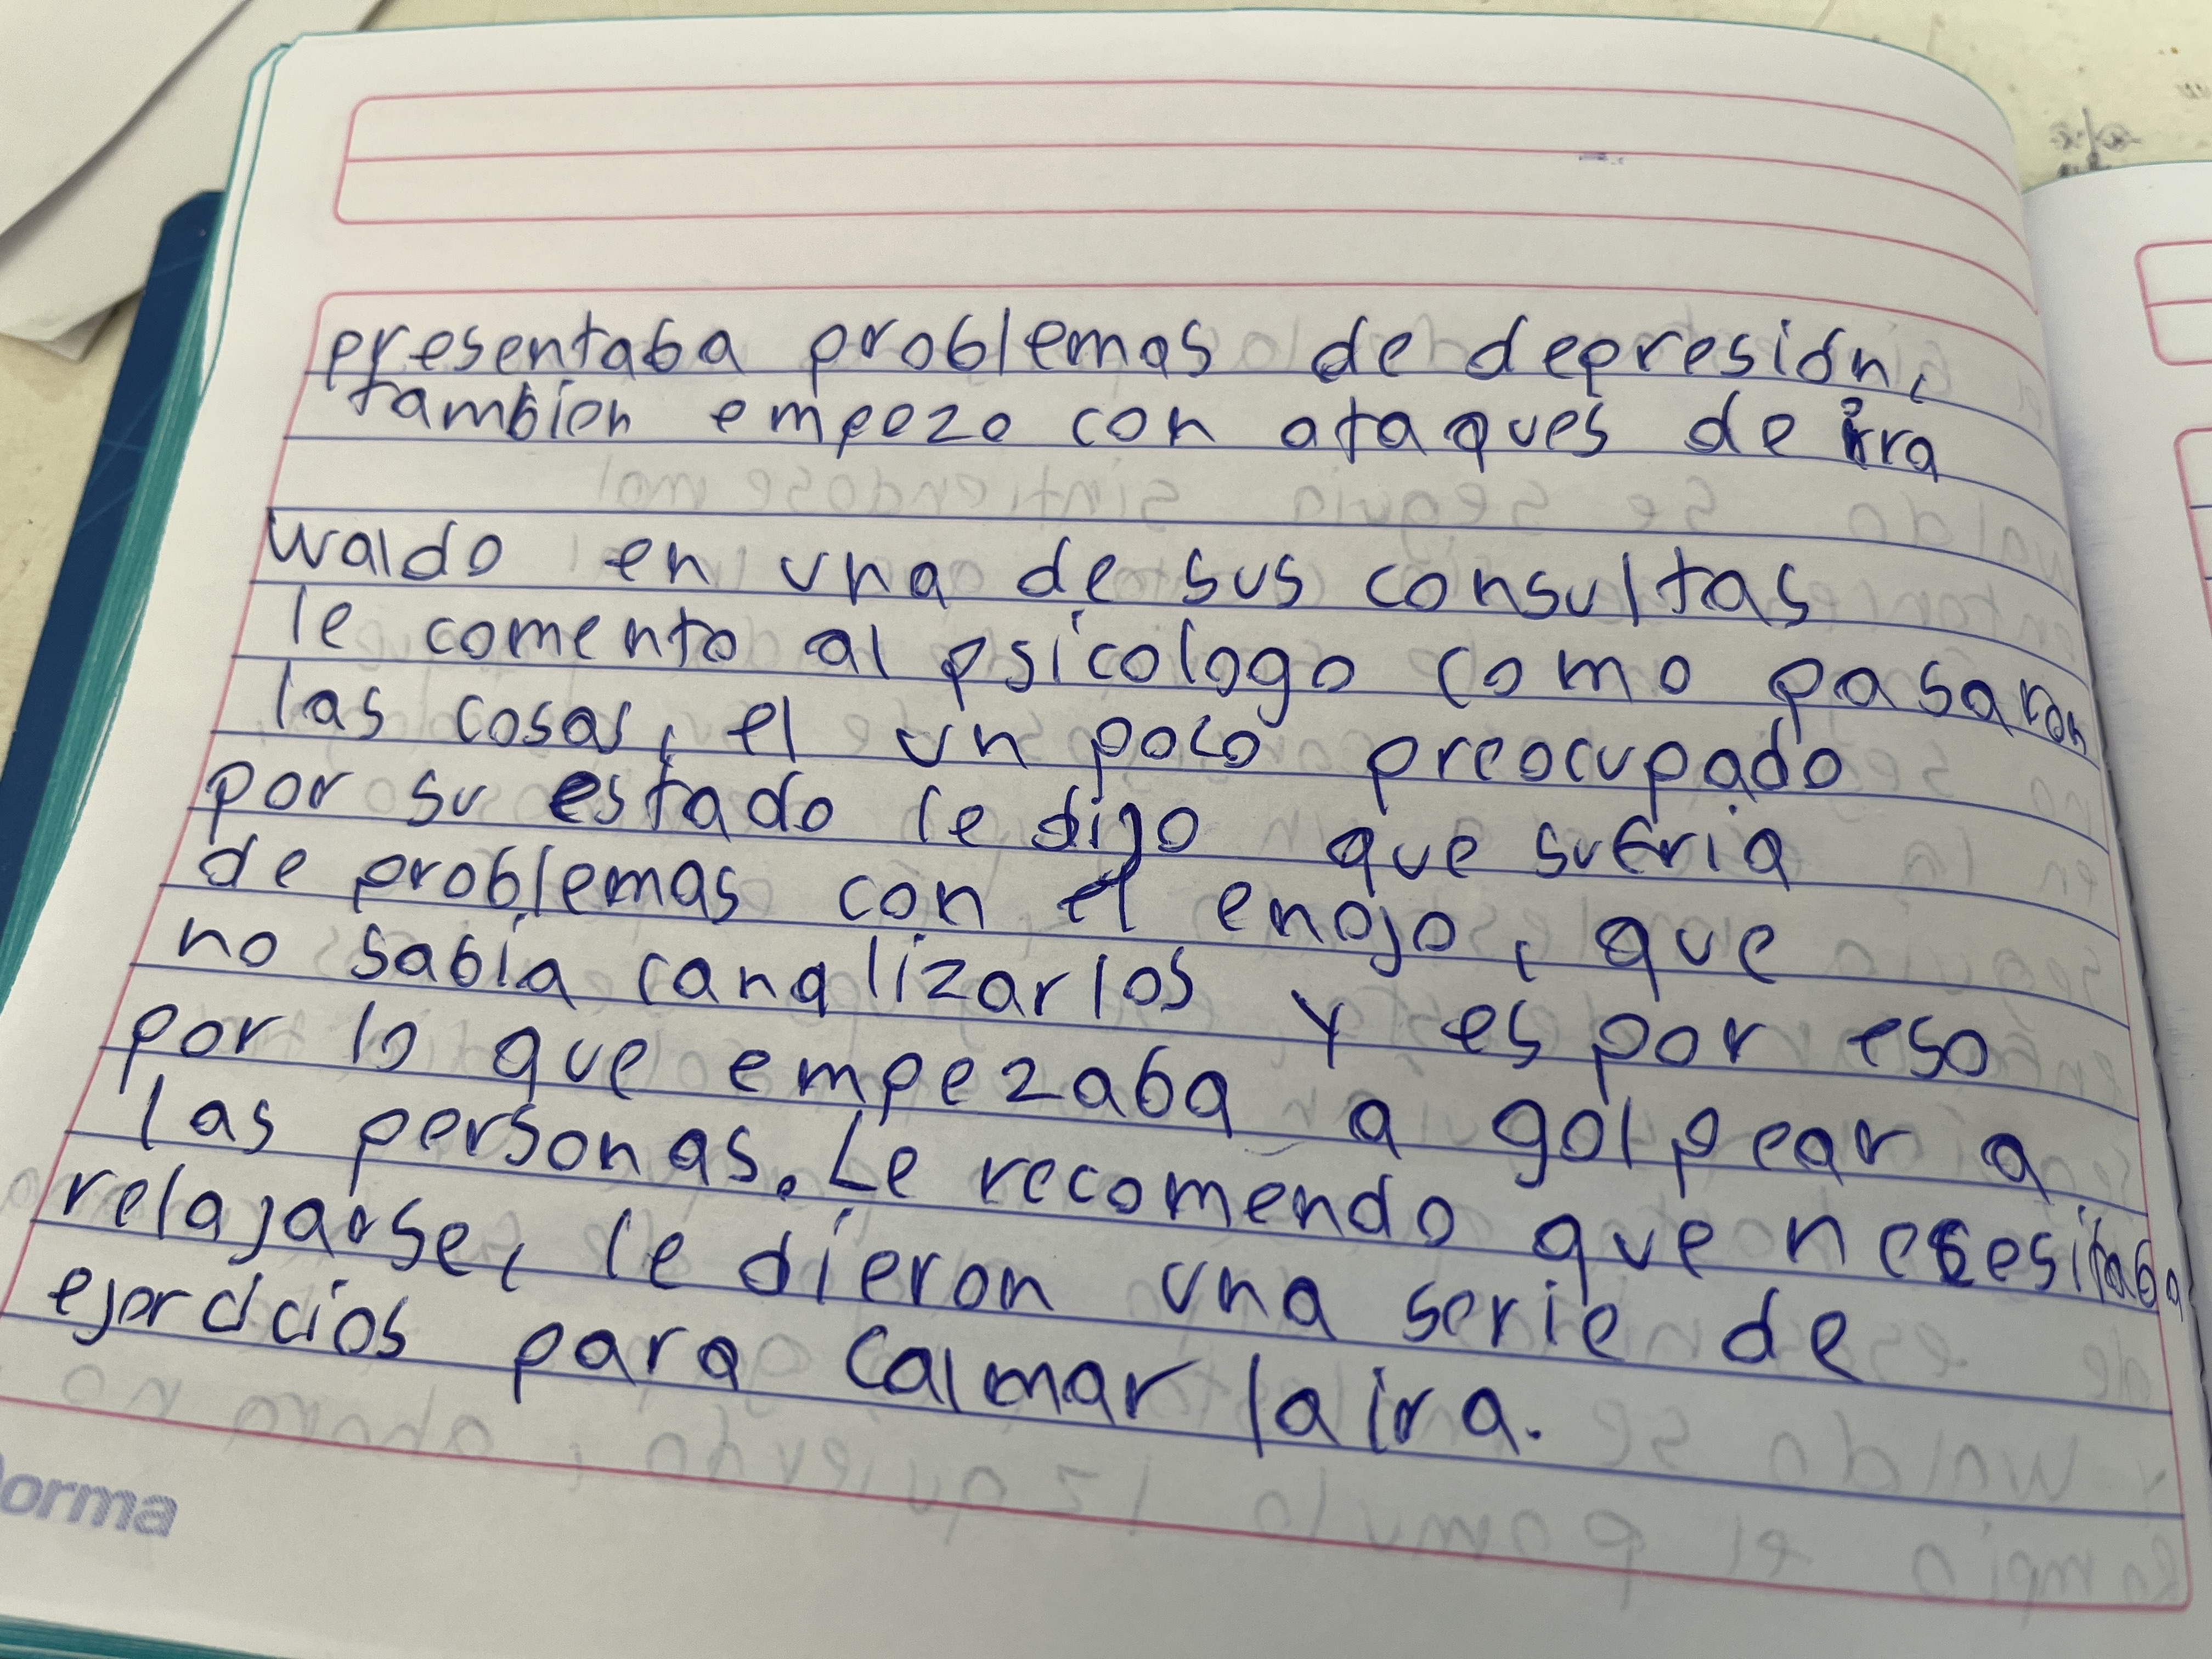 presentaba problemas de depresión,
tambien empezo con ataques de ira
waldo en una de sus consultas
le comento al psicologo como pasaron
las cosas, el un poco preocupado
por su estado le dijo que sufria
de problemas con el enojo, que
no sabia canalizarlos y es por eso
por lo que empezaba a golpear a
las personas. Le recomendo que necesitaba
relajarse, le dieron una serie de
ejercicios para calmar la ira.
orma